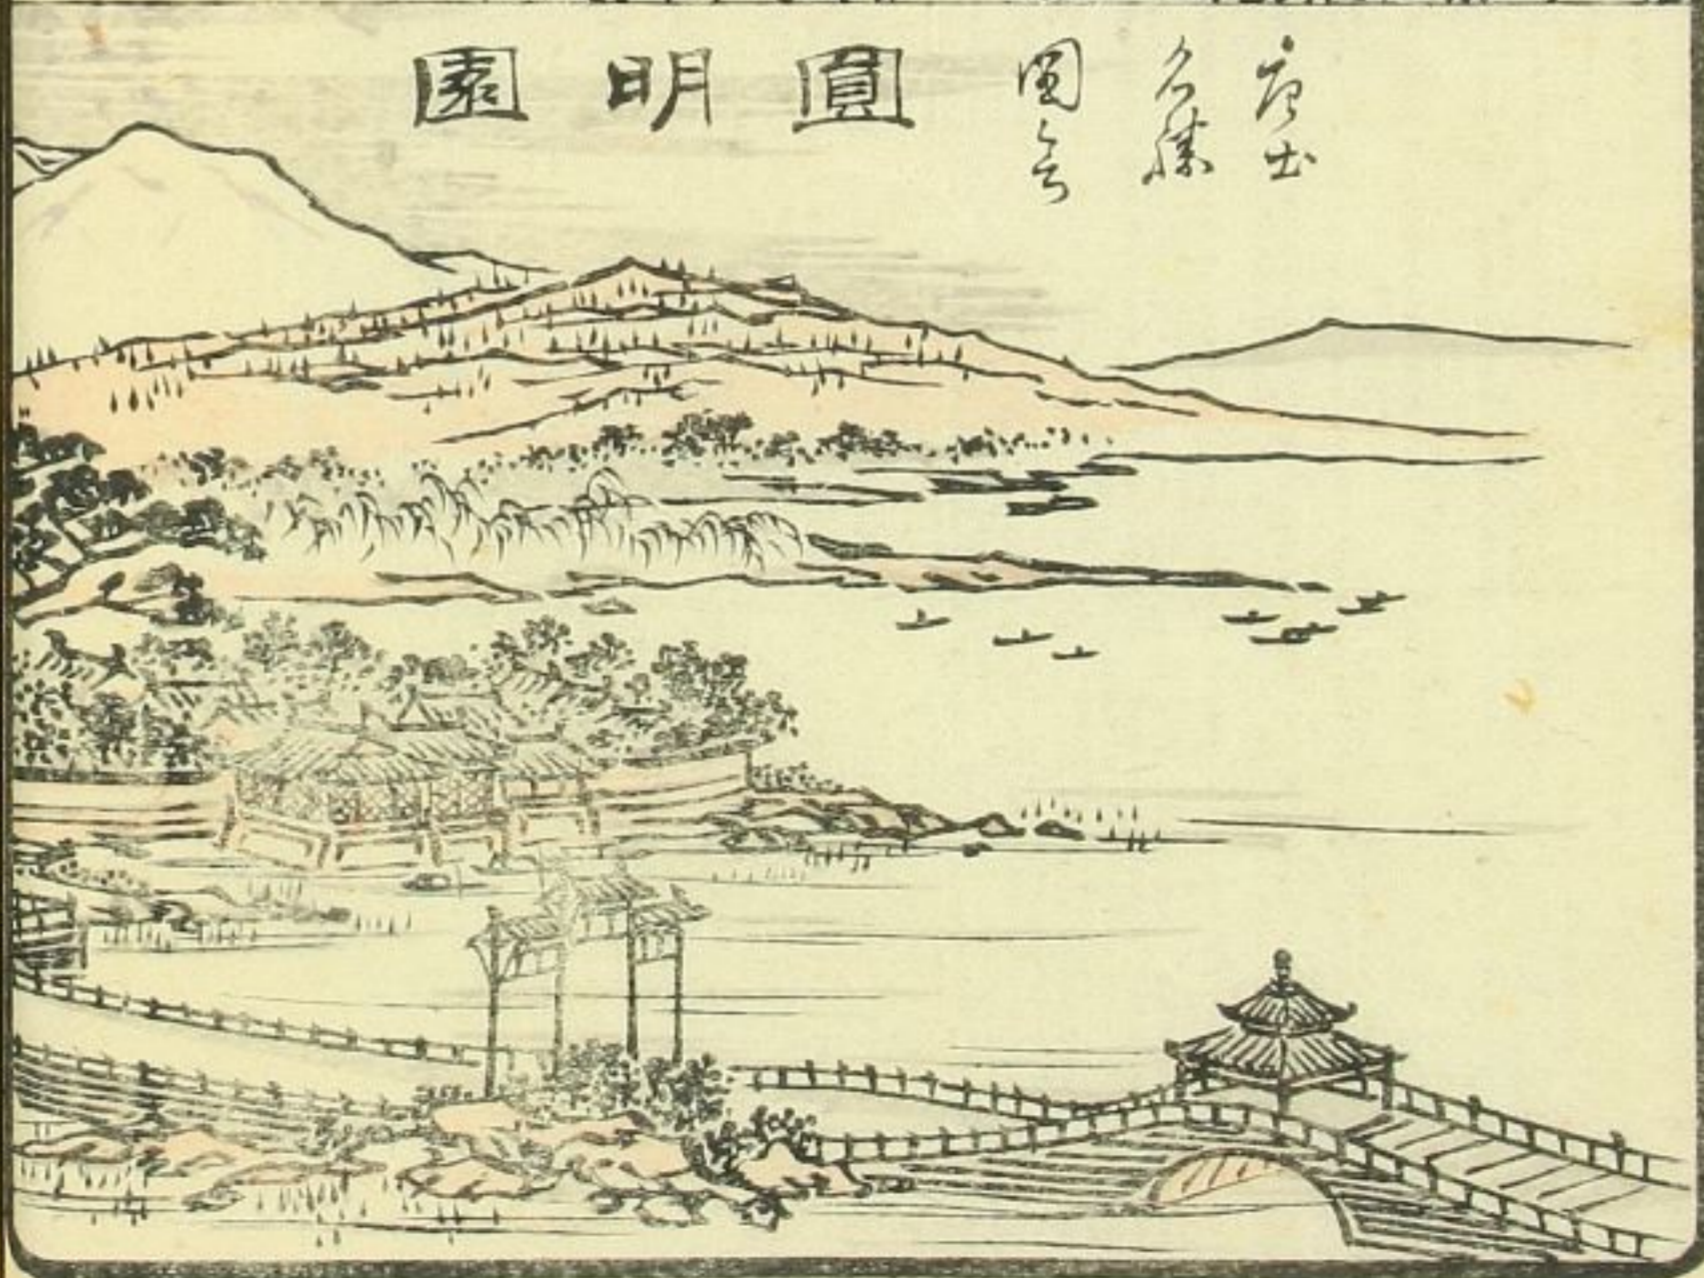 唐土
名勝
圖会
圓明園